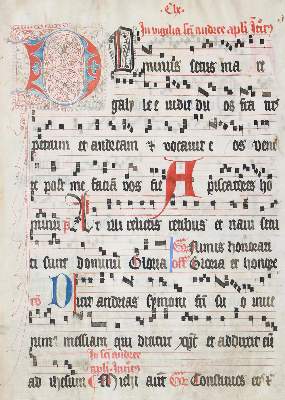 ·Clx·
In vigilia sci andree apli Itus
Dominus secus ma re
galylee uidit du os fra tres
petrum et andream & vocauit e os veni
te post me faciā vos fie ri piscatores ho
minū p̄ At illi relictis retibus et nam secuti
ti sunt dominū Gloria off Gloria et honore
Dicit andreas symoni fri su o inue
nimus messiam qui dicitur xp̄c et adduxit eū
In sci andree
apli Itus
ad ihesum Michi autē Constitues eos